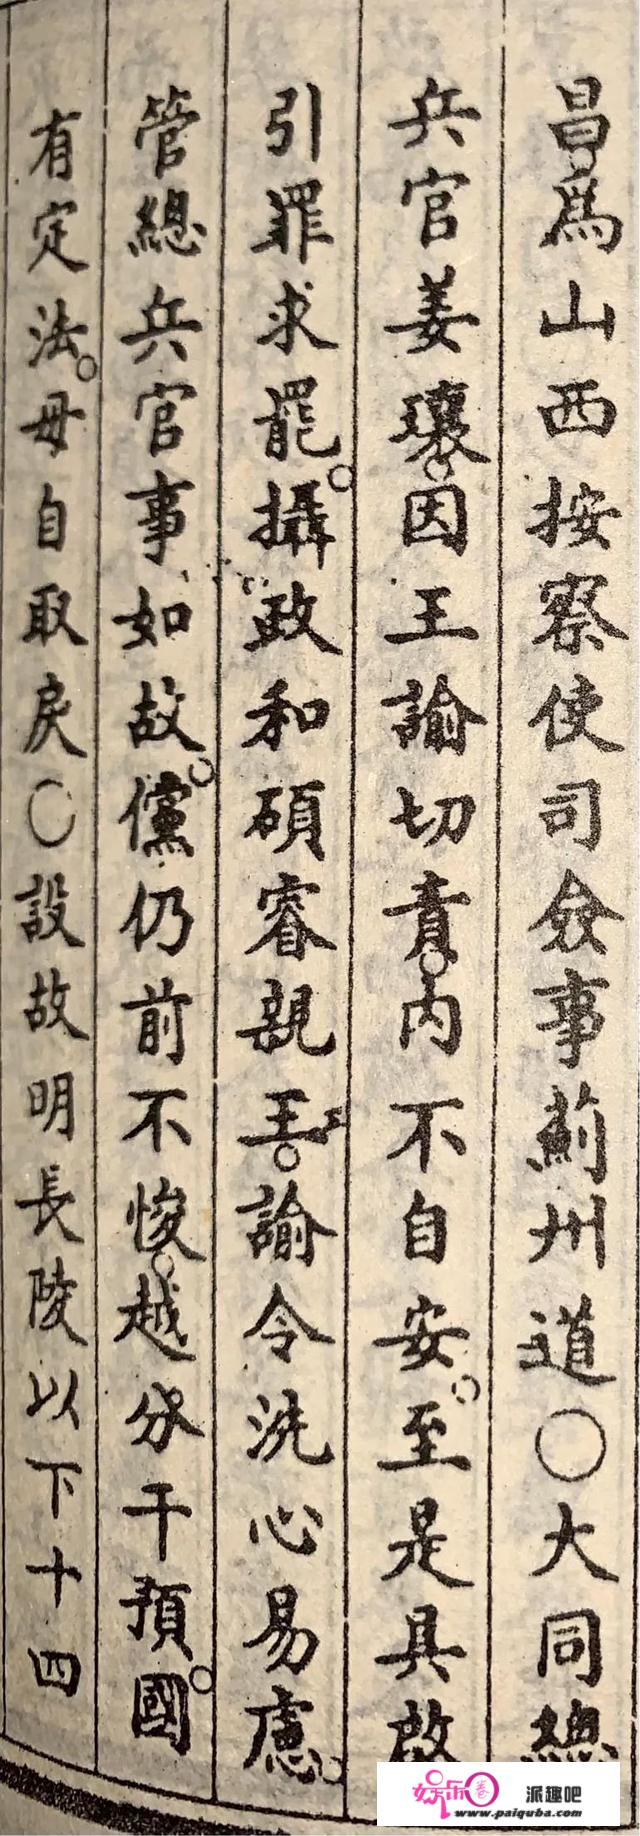 昌爲山西按察使司僉事薊州道○大同總
兵官姜瓖因王諭切責内不自安至是具啟
引罪求罷攝政和碩睿親王諭令洗心易慮
管總兵官事如故儻仍前不悛越分干預國
有定法毋自取戾○設故明長陵以下十四
娱乐圈 派趣吧
www.paiquba.com